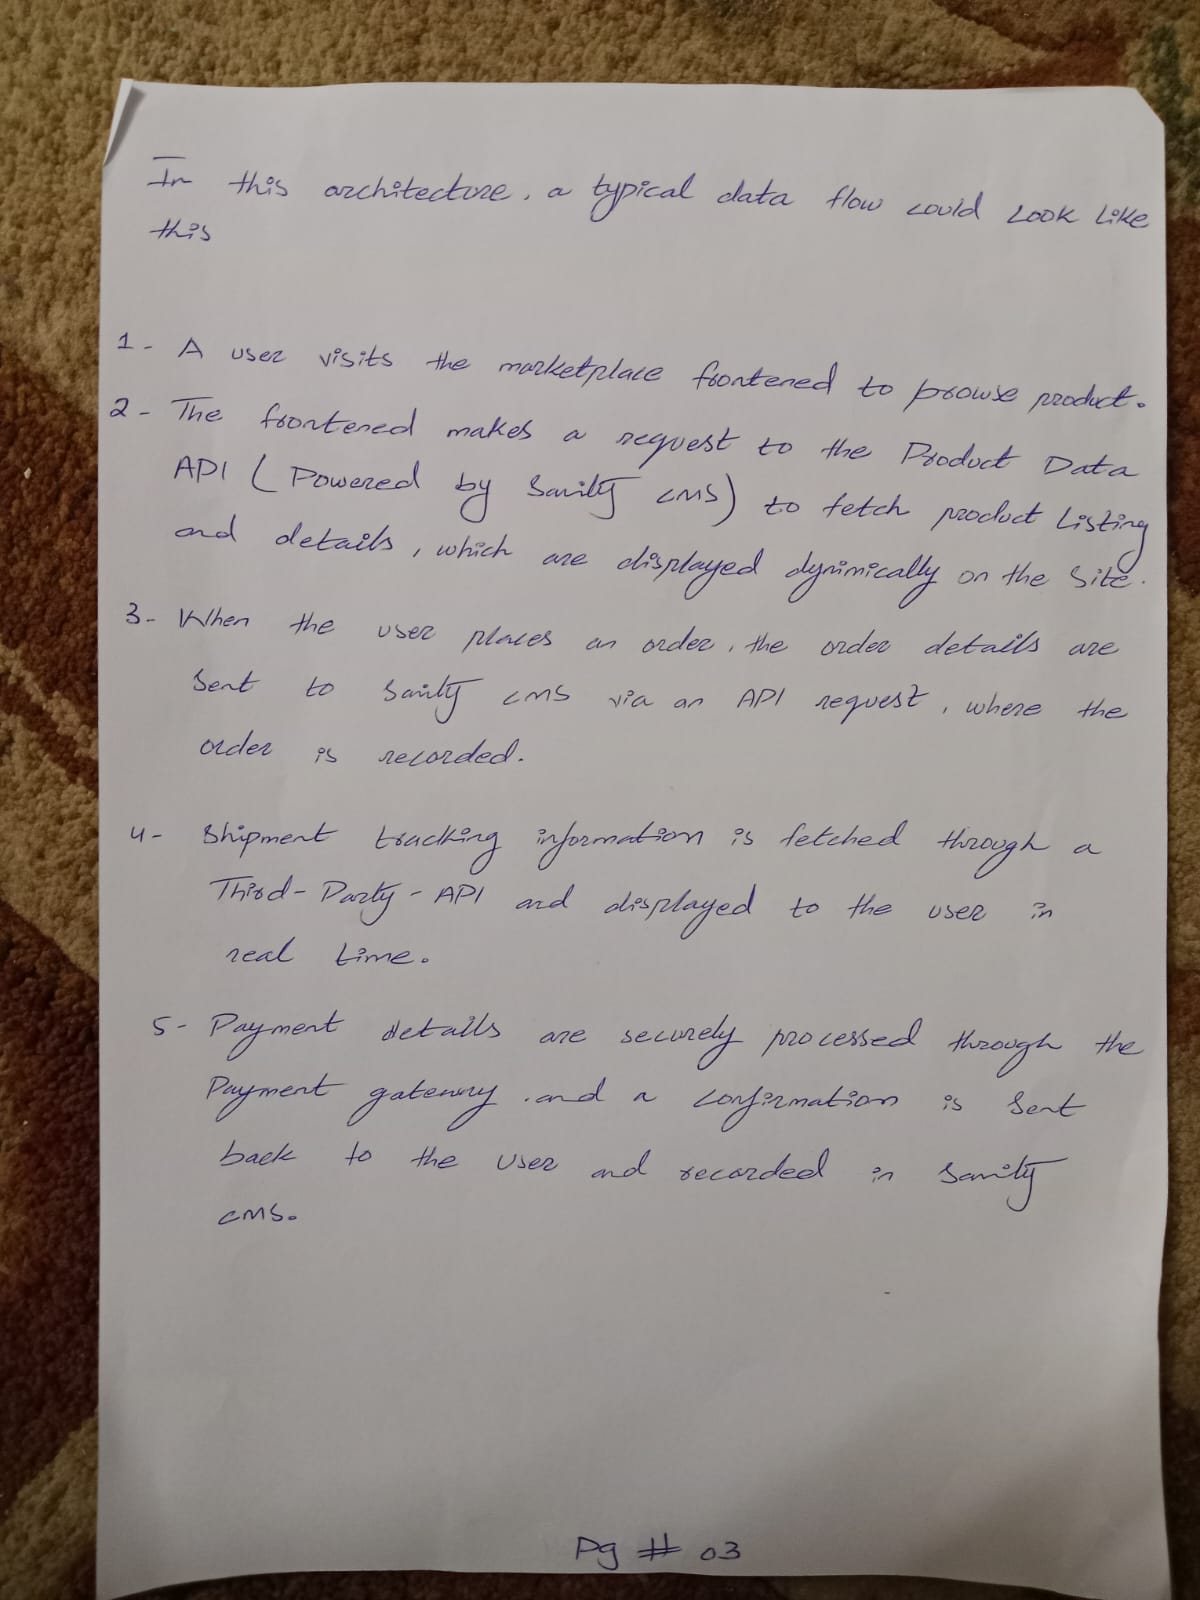 In this architecture, a typical data flow could Look Like
this
1- A user visits the marketplace frontened to browse product.
2- The frontened makes a request to the Product Data
API (Powered by Sanity CMS) to fetch product Listing
and details, which are displayed dynimically on the Site.
3- When the user places an order, the order details are
Sent to Sanity CMS via an API request, where the
order is recorded.
4- Shipment tracking information is fetched through a
Third-Party-API and displayed to the user in
real time.
5- Payment details are securely processed through the
Payment gateway, and a confirmation is Sent
back to the User and recorded in Sanity
CMS.
Pg # 03